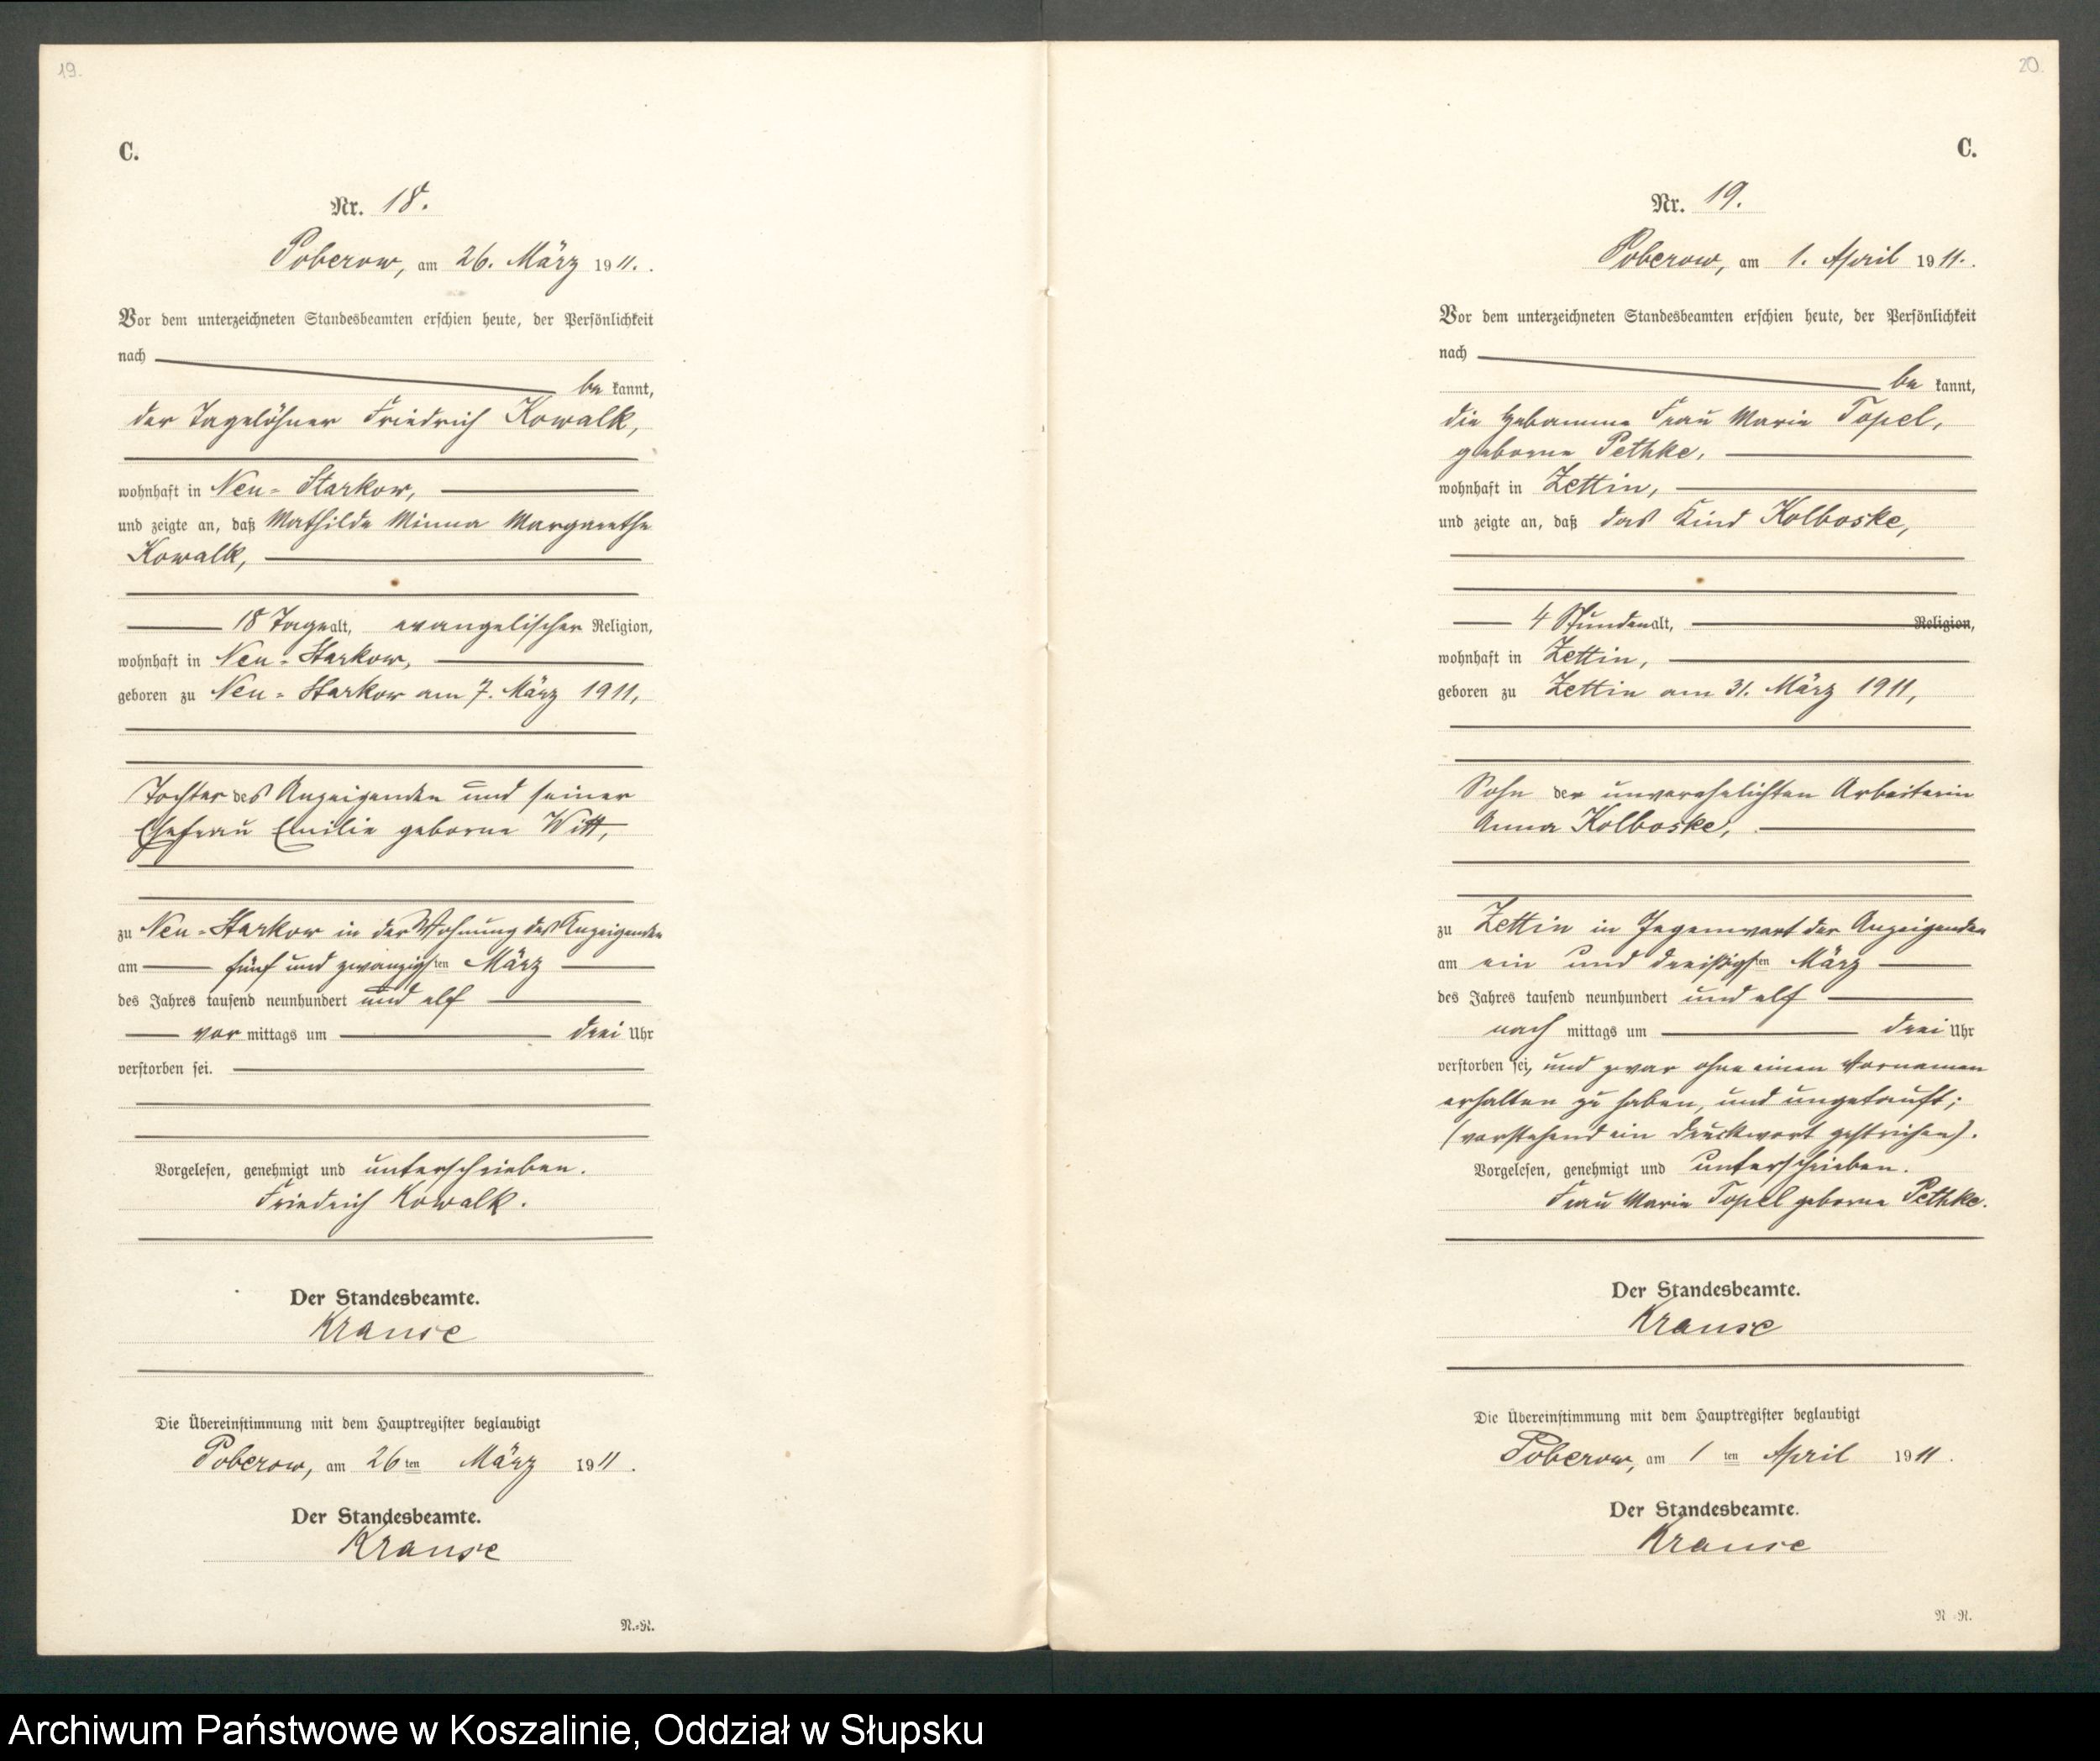 19.
C.
Nr. 18.
Poberow, am 26. März 1911.
Vor dem unterzeichneten Standesbeamten erschien heute, der Persönlichkeit
nach
be kannt,
der Tagelöhner Friedrich Kowalk,
wohnhaft in Neu-Starkow,
und zeigte an, daß Mathilde Minna Margarethe
Kowalk,
18 Tage alt, evangelischer Religion,
wohnhaft in Neu-Starkow,
geboren zu Neu-Starkow am 7. März 1911,
Tochter des Anzeigenden und seiner
Ehefrau Emilie geborne Witt,
zu Neu-Starkow in der Wohnung des Anzeigenden
am fünf und zwanzigsten März
des Jahres tausend neunhundert und elf
vor mittags um drei Uhr
verstorben sei.
Vorgelesen, genehmigt und unterschrieben.
Friedrich Kowalk.
Der Standesbeamte.
Krause
Die Übereinstimmung mit dem Hauptregister beglaubigt
Poberow, am 26ten März 1911.
Der Standesbeamte.
Krause
N.=N.
20.
C.
Nr. 19.
Poberow, am 1. April 1911.
Vor dem unterzeichneten Standesbeamten erschien heute, der Persönlichkeit
nach
be kannt,
die Hebamme Frau Marie Topel,
geborne Pethke,
wohnhaft in Zettin,
und zeigte an, daß das Kind Kolboske,
4 Stunden alt, Religion,
wohnhaft in Zettin,
geboren zu Zettin am 31. März 1911,
Sohn der unverehelichten Arbeiterin
Anna Kolboske,
zu Zettin in Gegenwart der Anzeigenden
am ein und dreißigsten März
des Jahres tausend neunhundert und elf
nach mittags um drei Uhr
verstorben sei, und zwar ohne einen Vornamen
erhalten zu haben, und ungetauft;
(vorstehend ein Druckwort gestrichen).
Vorgelesen, genehmigt und unterschrieben.
Frau Marie Topel geborne Pethke.
Der Standesbeamte.
Krause
Die Übereinstimmung mit dem Hauptregister beglaubigt
Poberow, am 1ten April 1911.
Der Standesbeamte.
Krause
N.=N.
Archiwum Państwowe w Koszalinie, Oddział w Słupsku